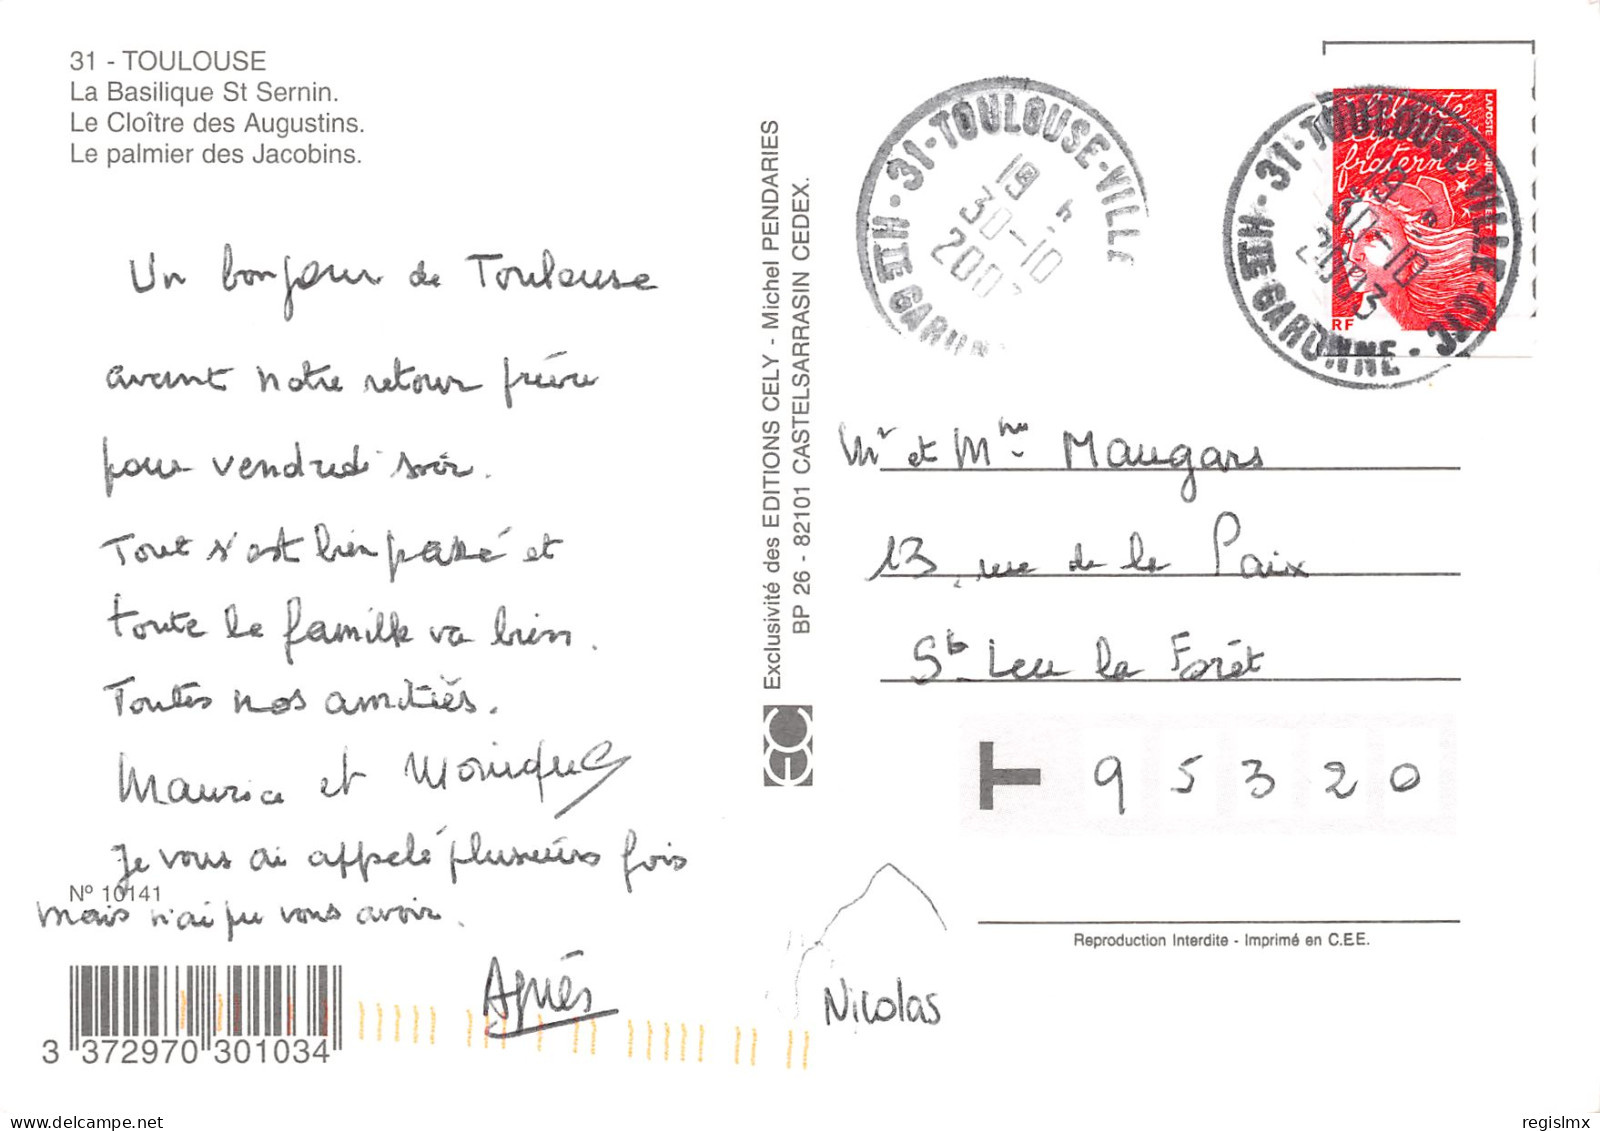 31 - TOULOUSE
La Basilique St Sernin.
Le Cloître des Augustins.
Le palmier des Jacobins.
Un bonjour de Toulouse
avant notre retour prévu
pour vendredi soir.
Tout s'est bien passé et
toute la famille va bien.
Toutes nos amitiés.
Maurice et Monique
Je vous ai appelé plusieurs fois
mais n'ai pu vous avoir.
Agnès
Nicolas
Nº 10141
3 372970 301034
Exclusivité des EDITIONS CELY - Michel PENDARIES
BP 26 - 82101 CASTELSARRASIN CEDEX.
31-TOULOUSE-VILLE
19 h
30-10
2003
HTE GARON
liberté
égalité
fraternité
LA POSTE
RF
31-TOULOUSE-VILLE-31C
19 h
30-10
2003
HTE GARONNE
Mr et Mme Maugars
13, rue de la Paix
St Leu la Forêt
T 95320
Reproduction Interdite - Imprimé en C.E.E.
regislmx